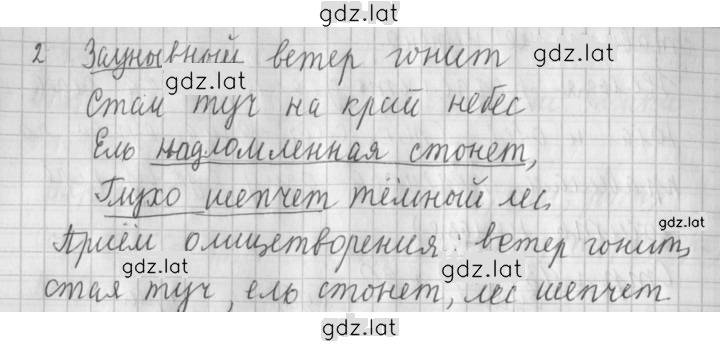 gdz.lat
2 Заунывный ветер гонит
gdz.lat
gdz.lat
Стаи туч на край небес
Ель надломленная стонет,
Глухо шепчет тёмный лес.
gdz.lat
Приём олицетворения: ветер гонит,
gdz.lat
gdz.lat
стая туч, ель стонет, лес шепчет
gdz.lat